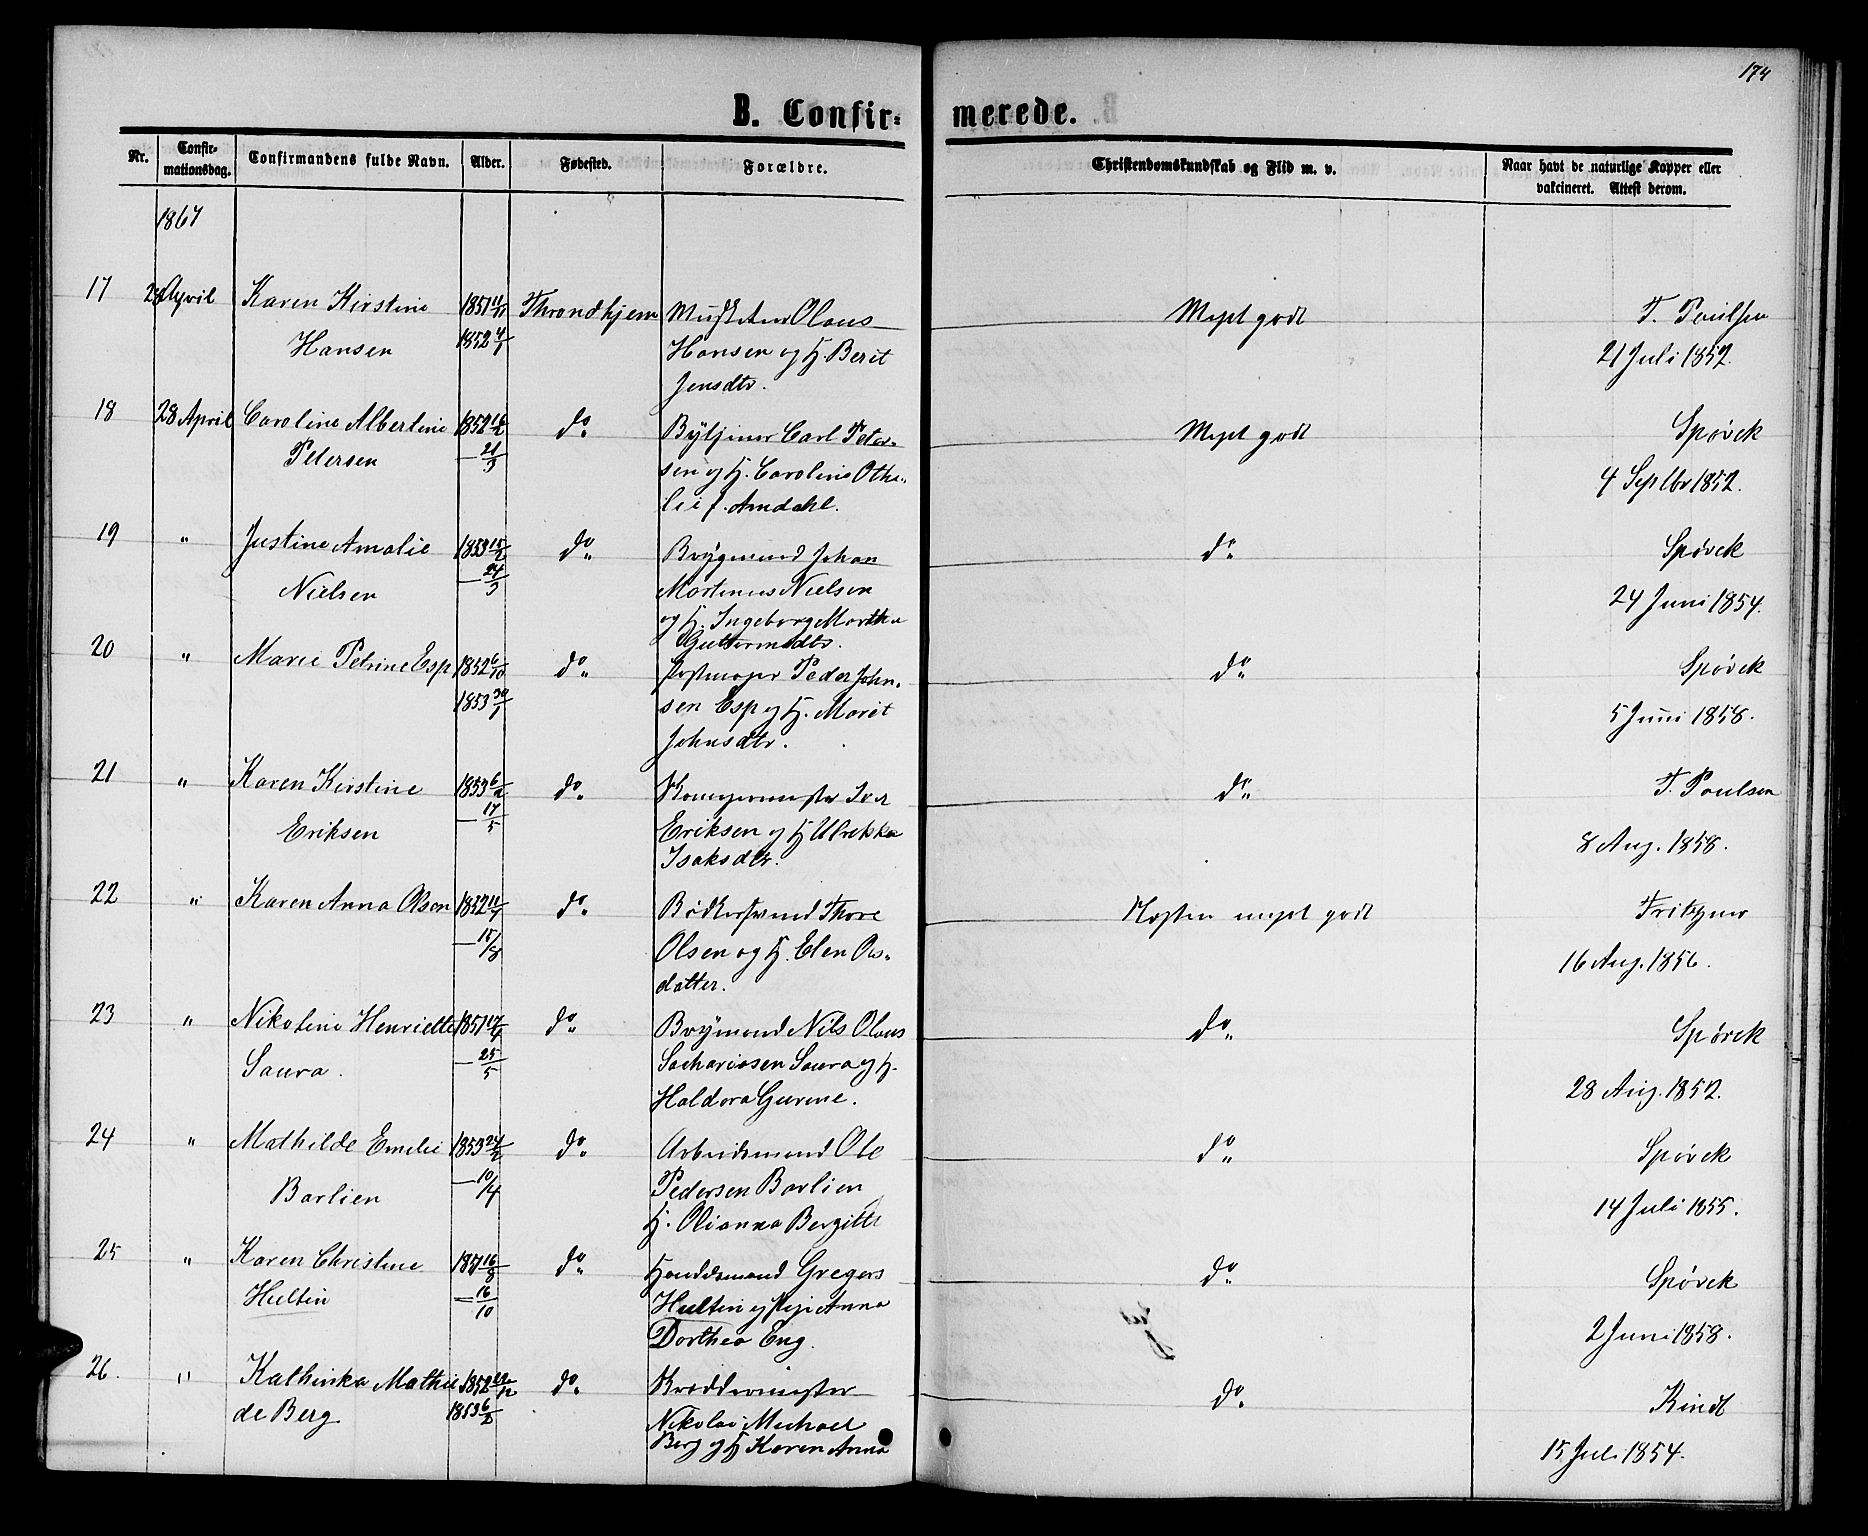 174
B. Confir=
merede.
Nr.
Confir-
mationsdag.
Confirmandens fulde Navn.
Alder.
Fødested.
Forældre.
Christendomskundskab og Flid m. v.
Naar havt de naturlige Kopper eller
vakcineret. Attest derom.
1867
17 April Karen Kirstine 1851 Throndhjem Olaus Meget godt T. Poulsen
Hansen 1852 4/1 Hansen og H. Berit 21 Juli 1852.
Jensdtr.
18 28 April Caroline Albertine 1852 do Carl Peter- Meget godt Spørck
Petersen — 21/3 sen og H. Caroline Otha-
4 Septbr 1852.
lie f. Amdahl.
19 " Justine Amalie 1853 15/2 do Brygmand Johan do Spørck
Nielsen — 24/3 Martinus Nielsen 24 Juni 1854.
og H. Ingeborg Martha
Guttormsdtr.
20 " Marie Petrine Esp 1852 6/10 do Peder John- do Spørck
1853 30/1 sen Esp og H. Marit 5 Juni 1858.
Johnsdtr.
21 " Karen Kirstine 1853 6/2 do Iver do T. Poulsen
Eriksen — 17/5 Eriksen og H. Ulrikka 8 Aug. 1858.
Isaksdtr.
22 " Karen Anna Olsen 1852 do Bødkersvend Thore Næsten meget godt
— 15/8 Olsen og H. Elen Ols- 16 Aug. 1856.
datter.
23 " Nikoline Henriette 1851 17/4 do Brygmand Nils Olaus do Spørck
Saura. — 25/5 Sachariasen Saura og H. 28 Aug. 1852.
Haldora Gurine.
24 " Mathilde Emelie 1853 24/2 do Arbeidsmand Ole do Spørck
Barlien — 10/4 Pedersen Barlien 14 Juli 1855.
H. Olianna Bergitte
25 " Karen Christine 1851 16/8 do Gregers do Spørck
Hultin = 16/10 Hultin og Pige Anna 2 Juni 1858.
Dorthea Eng.
26. " Kathinka Mathil 1852 do do Kindt
de Berg 1853 6/2 Nikolai Michael 15 Juli 1854.
Berg og H. Karen Anna